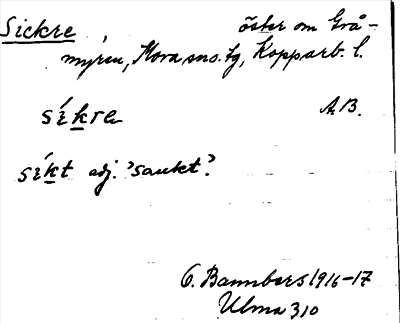 Sickre öster om Grå-
myren, Mora sns. lg, Kopparb. l.
síkre A.B.
síkt adj. ’sankt’.
O. Bannbers 1916-17
Ulma 310